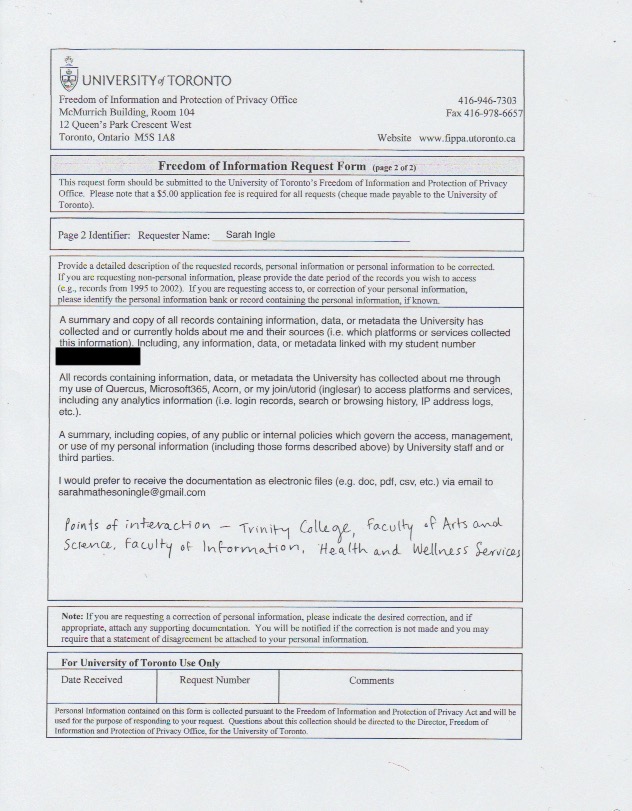 UNIVERSITY of TORONTO
Freedom of Information and Protection of Privacy Office
416-946-7303
McMurrich Building, Room 104
Fax 416-978-6657
12 Queen's Park Crescent West
Toronto, Ontario M5S 1A8
Website www.fippa.utoronto.ca
Freedom of Information Request Form (page 2 of 2)
This request form should be submitted to the University of Toronto's Freedom of Information and Protection of Privacy
Office. Please note that a $5.00 application fee is required for all requests (cheque made payable to the University of
Toronto).
Page 2 Identifier: Requester Name: Sarah Ingle
Provide a detailed description of the requested records, personal information or personal information to be corrected.
If you are requesting non-personal information, please provide the date period of the records you wish to access
(e.g., records from 1995 to 2002). If you are requesting access to, or correction of your personal information,
please identify the personal information bank or record containing the personal information, if known.
A summary and copy of all records containing information, data, or metadata the University has
collected and or currently holds about me and their sources (i.e. which platforms or services collected
this information). Including, any information, data, or metadata linked with my student number
All records containing information, data, or metadata the University has collected about me through
my use of Quercus, Microsoft365, Acorn, or my join/utorid (inglesar) to access platforms and services,
including any analytics information (i.e. login records, search or browsing history, IP address logs,
etc.).
A summary, including copies, of any public or internal policies which govern the access, management,
or use of my personal information (including those forms described above) by University staff and or
third parties.
I would prefer to receive the documentation as electronic files (e.g. doc, pdf, csv, etc.) via email to
sarahmathesoningle@gmail.com
Points of interaction – Trinity College, Faculty of Arts and
Science, Faculty of Information, Health and Wellness Services
Note: If you are requesting a correction of personal information, please indicate the desired correction, and if
appropriate, attach any supporting documentation. You will be notified if the correction is not made and you may
require that a statement of disagreement be attached to your personal information.
For University of Toronto Use Only
Date Received Request Number Comments
Personal Information contained on this form is collected pursuant to the Freedom of Information and Protection of Privacy Act and will be
used for the purpose of responding to your request. Questions about this collection should be directed to the Director, Freedom of
Information and Protection of Privacy Office, for the University of Toronto.